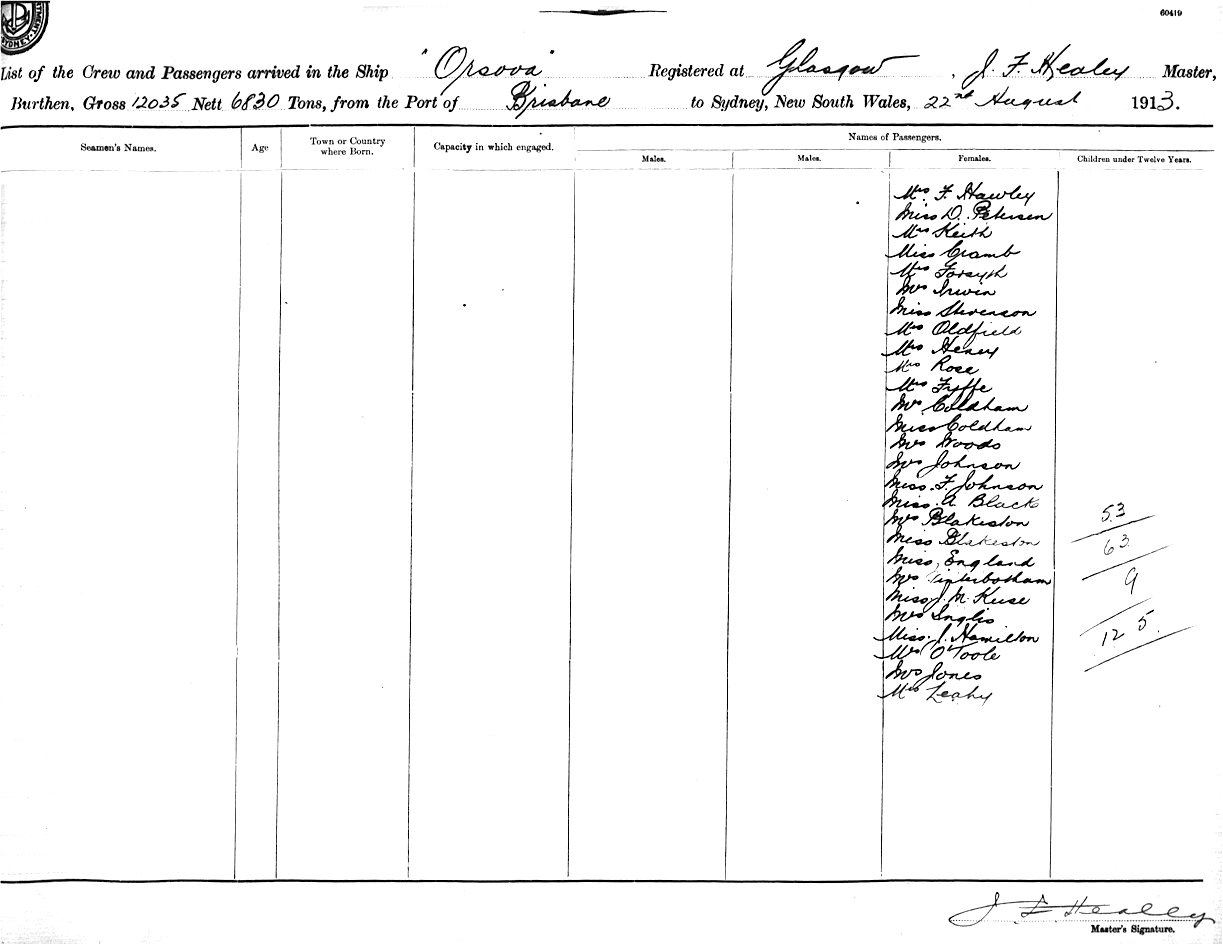 SYDNEY
60419
List of the Crew and Passengers arrived in the Ship "Orsova" Registered at Glasgow, J. F. Healey Master,
Burthen, Gross 12035 Nett 6830 Tons, from the Port of Brisbane to Sydney, New South Wales, 22nd August 1913.
Seamen's Names. Age Town or Country where Born. Capacity in which engaged. Names of Passengers.
Males. Males. Females. Children under Twelve Years.
Mrs. F. Hawley
Miss D. Petersen
Mrs Keith
Miss Cramb
Mrs Forsyth
Mrs Irwin
Miss Stevenson
Mrs Oldfield
Mrs Heney
Mrs Rose
Mrs Fyffe
Mrs Coldham
Miss Coldham
Mrs Woods
Mrs Johnson
Miss. F. Johnson
Miss. A Black
53
Mrs Blakeston
Miss Blakeston
63
Miss, England
Mrs Winterbotham
9
Miss J. M. Kuse
Mrs Inglis
Miss. J. Hamilton
125.
Mrs O'Toole
Mrs Jones
Mrs Leahy
J F Healey
Master's Signature.